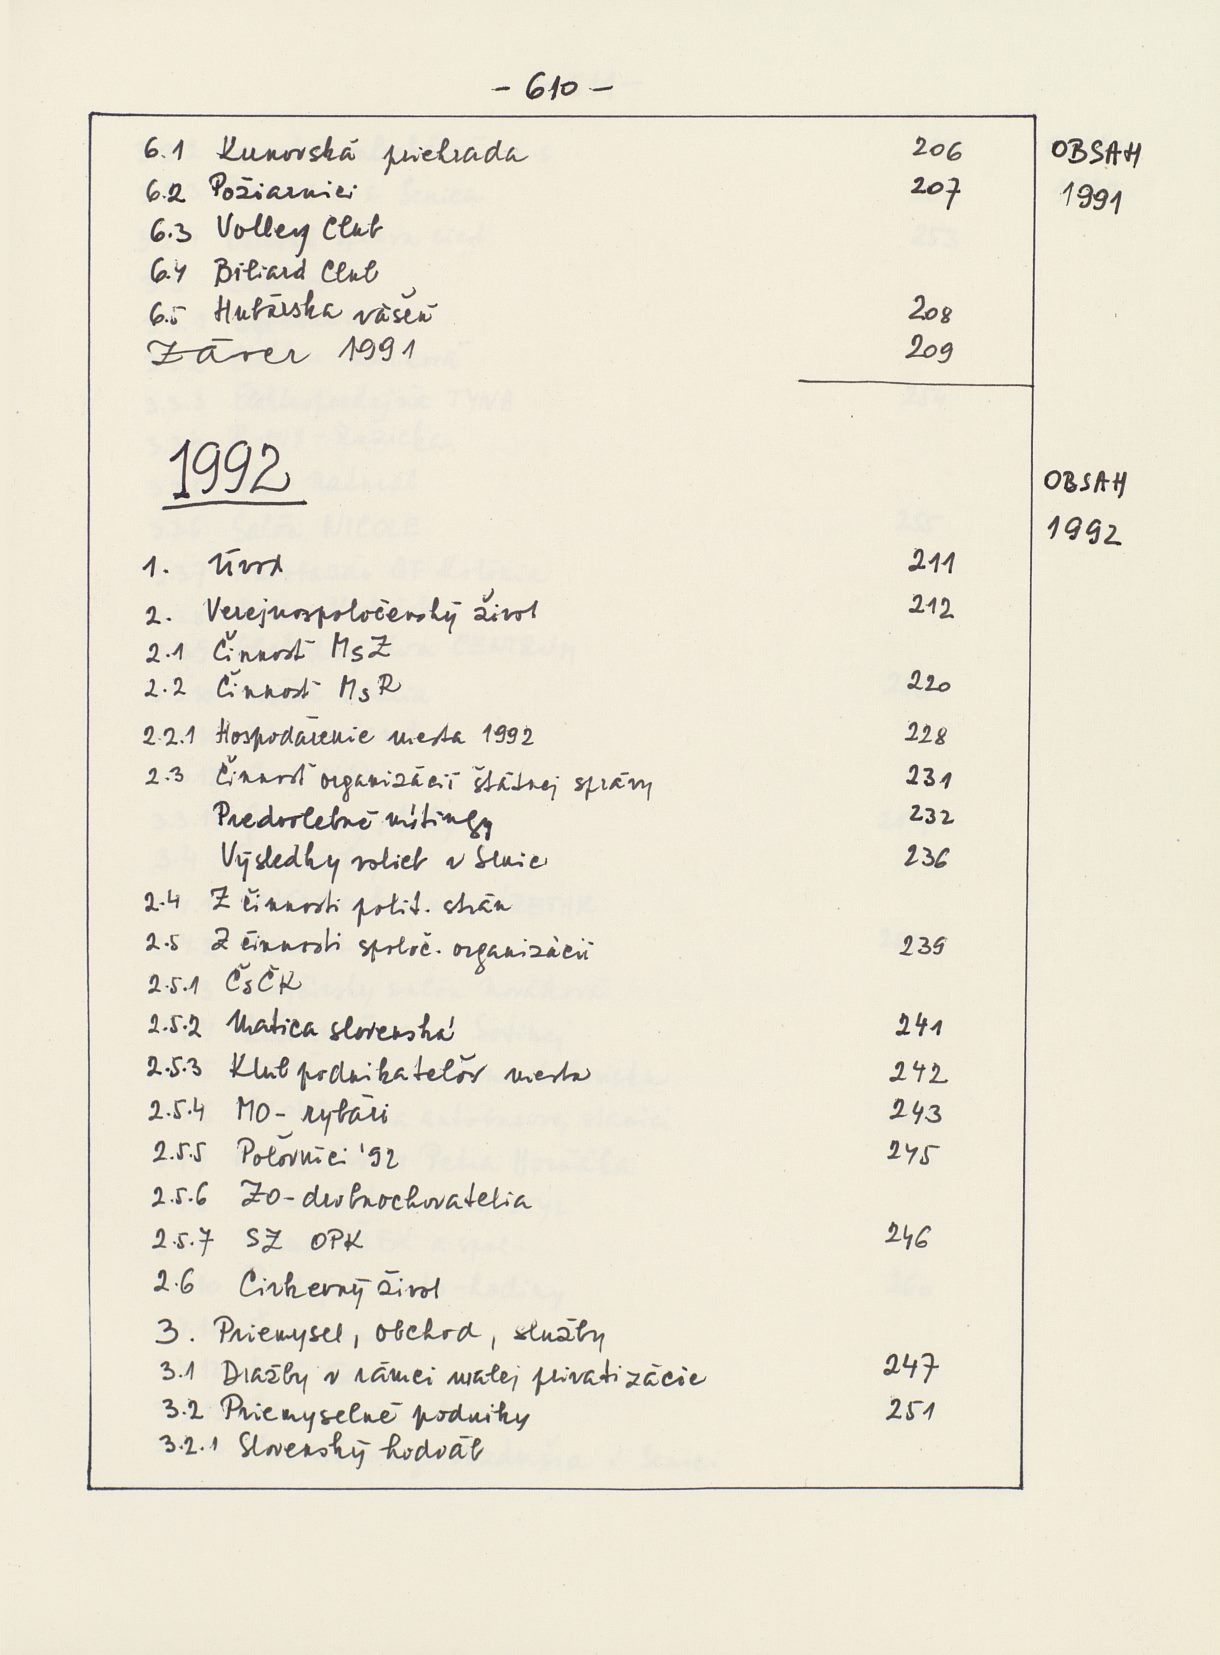 - 610 -
6.1 Kunovská priehrada 206
OBSAH
1991
6.2 Požiarnici 207
6.3 Volley Club
6.4 Biliard Club
6.5 Hubárska vášeň 208
Záver 1991 209
1992
OBSAH
1992
1. Úvod 211
2. Verejnospoločenský život 212
2.1 Činnosť MsZ
2.2 Činnosť MsR 220
2.2.1 Hospodárenie mesta 1992 228
2.3 Činnosť organizácií štátnej správy 231
Predvolebné mítingy 232
Výsledky volieb v Senic 236
2.4 Z činnosti polit. strán
2.5 Z činnosti spoloč. organizácií 239
2.5.1 ČsČK
2.5.2 Matica slovenská 241
2.5.3 Klub podnikateľov mesta 242
2.5.4 MO - rybári 243
2.5.5 Poľovníci '92 245
2.5.6 ZO - drobnochovatelia
2.5.7 SZ OPK 246
2.6 Cirkevný život
3. Priemysel, obchod, služby
3.1 Dražby v rámci malej privatizácie 247
3.2 Priemyselné podniky 251
3.2.1 Slovenský hodváb